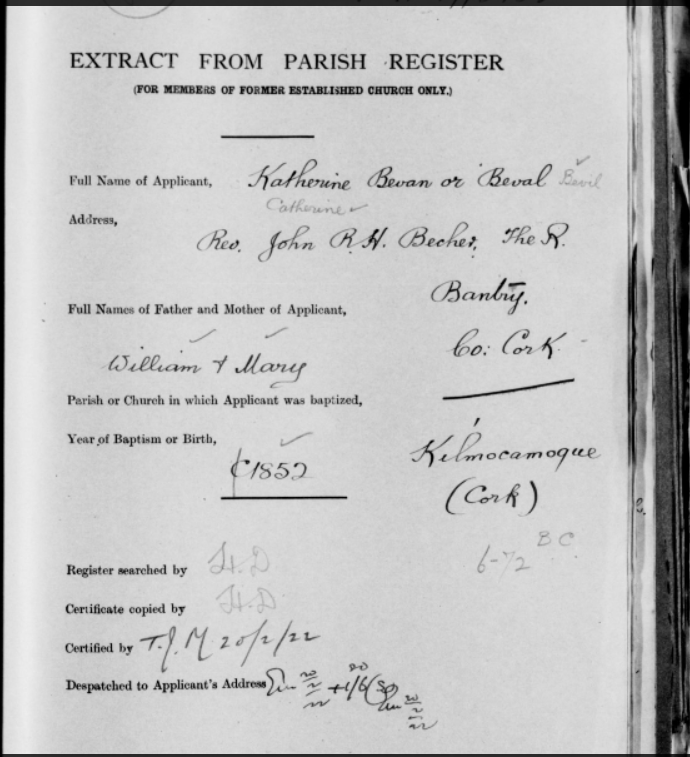 EXTRACT FROM PARISH REGISTER
(FOR MEMBERS OF FORMER ESTABLISHED CHURCH ONLY.)
Full Name of Applicant, Katherine Bevan or Beval Bevil
Catherine
Address,
Rev. John R. H. Becher, The R.
Bantry.
Co: Cork
Full Names of Father and Mother of Applicant,
William & Mary
Parish or Church in which Applicant was baptized,
Kilmocamoque
(Cork)
Year of Baptism or Birth,
C1852
6-72 B C
Register searched by H.D
Certificate copied by H.D
Certified by T.J.M 20/2/22
Despatched to Applicant's Address